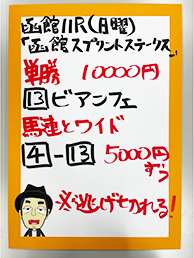 函館11R(日曜)
「函館スプリントステークス」
単勝 10000円
13 ビアンフェ
馬連とワイド
4-13 5000円ずつ
※逃げ切れる!